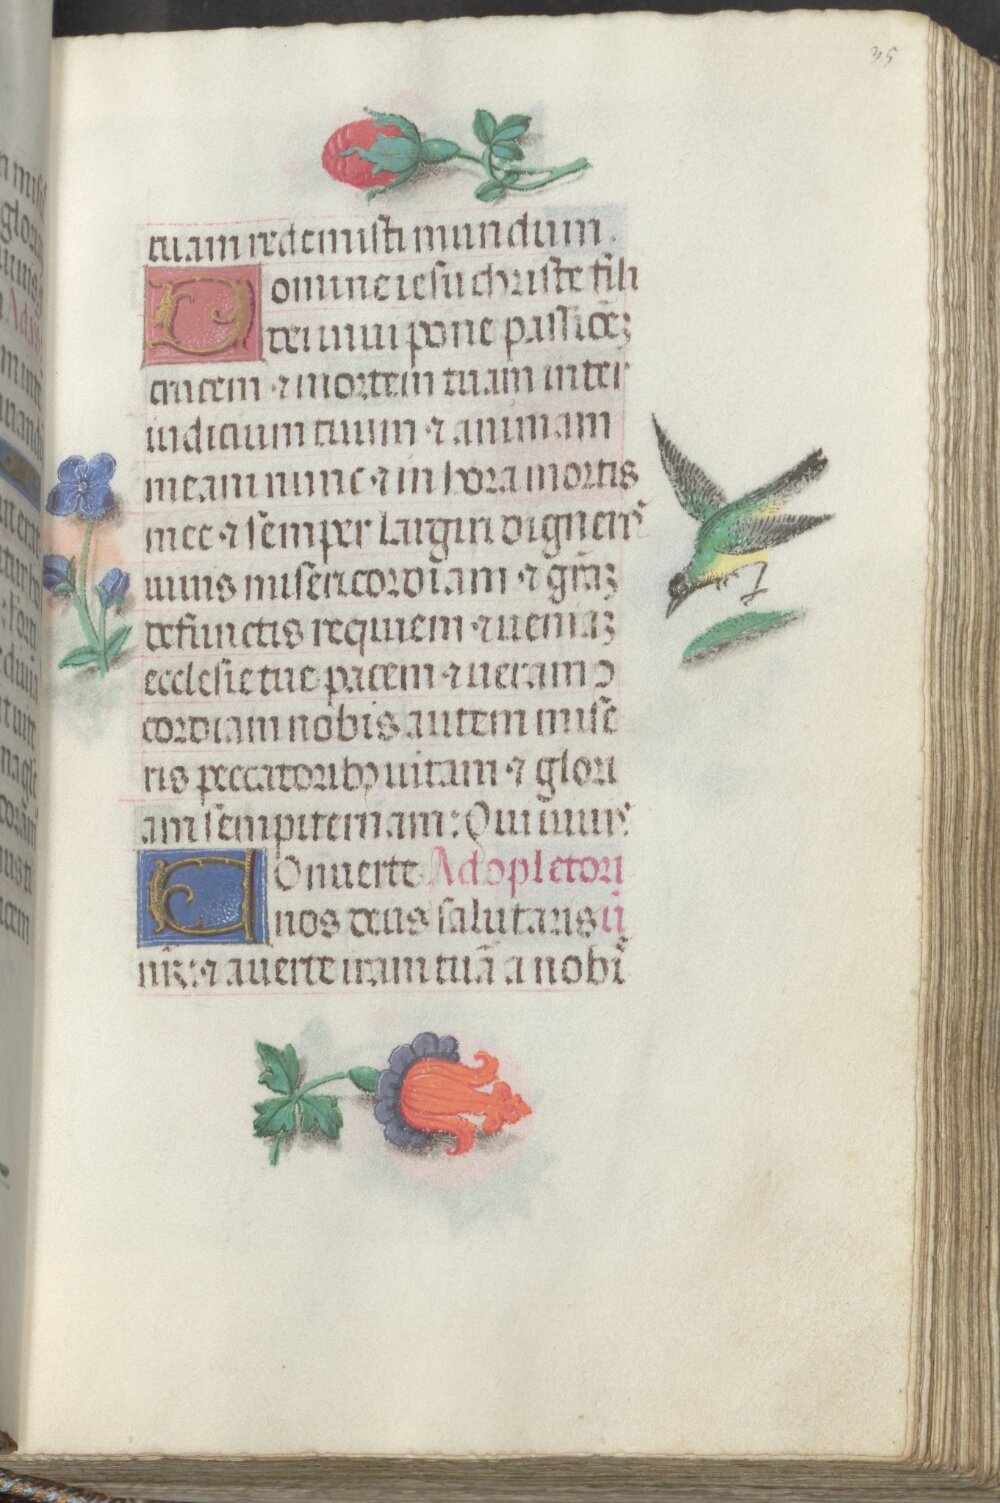 35
tuam redemisti mundum.
Domine iesu christe fili
dei uiui pone passioēꝫ
crucem ⁊ mortem tuam inter
iudicium tuum ⁊ animam
meam nunc ⁊ in hora mortis
mee ⁊ semper largiri digneris
uiuis misericordiam ⁊ grāꝫ
defunctis requiem ⁊ ueniaꝫ
ecclesie tue pacem ⁊ ueram ɔ
cordiam nobis autem mise
ris peccatoribꝫ uitam ⁊ glori
am sempiternam: Qui uiuis
COnuerte Ad ɔpletori
nos deus salutaris ū
nr̄: ⁊ auerte iram tuā a nobis